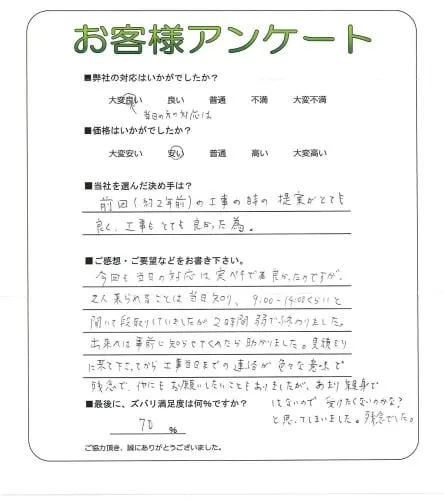 お客様アンケート
■弊社の対応はいかがでしたか?
大変良い 良い 普通 不満 大変不満
当日の方の対応は
■価格はいかがでしたか?
大変安い 安い 普通 高い 大変高い
■当社を選んだ決め手は?
前回(約2年前)の工事の時の提案がとても
良く、工事もとても良かった為。
■ご感想・ご要望などをお書き下さい。
今回も当日の対応は で 良かったのですが、
2人来られることは当日知り、9:00~14:00くらいと
聞いて段取りしていましたが2時間弱で終わりました。
出来れば事前に知らせてくれたら助かりました。見積もり
に来て下さってから工事当日までの連絡が色々な意味で
残念で、他にもお願いしたいこともありましたが、あまり親身で
はないので受けたくないのかな?
と思ってしまいました。残念でした。
■最後に、ズバリ満足度は何%ですか?
70 %
ご協力頂き、誠にありがとうございました。